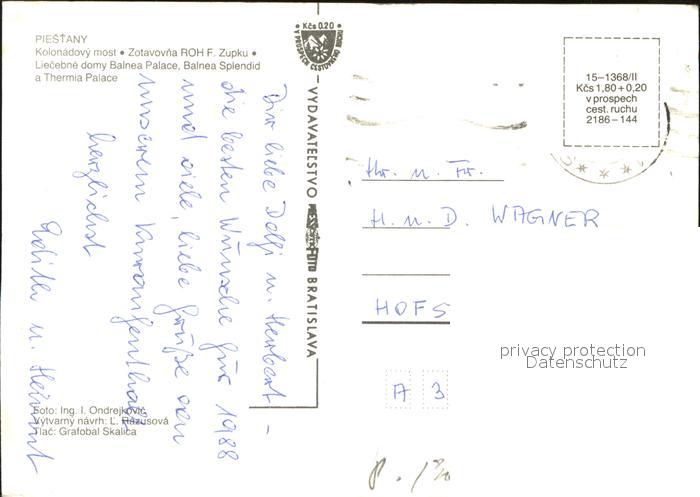 PIEŠŤANY
Kolonádový most • Zotavovňa ROH F. Zupku •
Liečebné domy Balnea Palace, Balnea Splendid
a Thermia Palace
Kčs 0.20
V PROSPECH CESTOVNÉHO RUCHU
VYDAVATEĽSTVO
BRATISLAVA
15–1368/II
Kčs 1,80 + 0,20
v prospech
cest. ruchu
2186 – 144
Dir liebe Dolfi u. Herbert –
die besten Wünsche für 1988
und viele, liebe Grüße von
unserem Kuraufenthalt
herzlichst
Edith u. Helmut
Hr. u. Fr.
H. u. D. WAGNER
HOFS
A 3
Foto: Ing. I. Ondrejkovič
Výtvarný návrh: Ľ. Rázusová
Tlač: Grafobal Skalica
privacy protection
Datenschutz